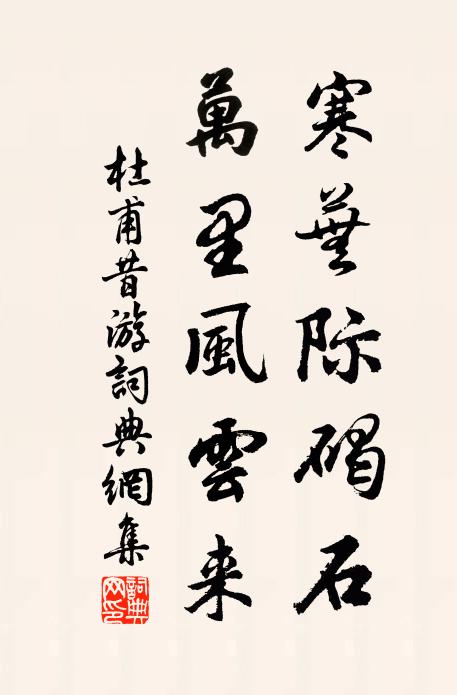 寒蕪际碣石
萬里風雲来
杜甫昔游詞典網集
詞典網印